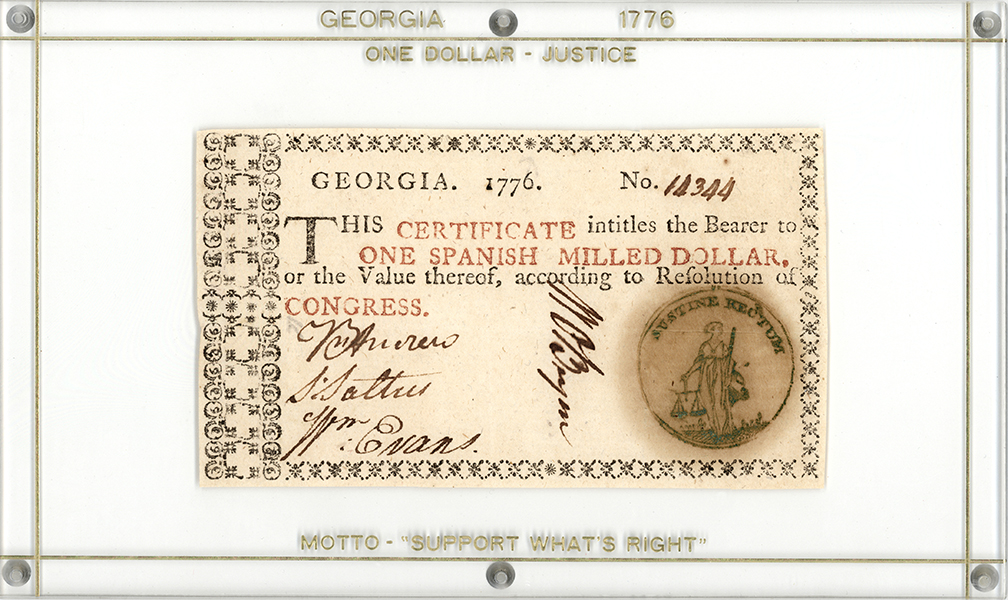 GEORGIA 1776
ONE DOLLAR - JUSTICE
GEORGIA. 1776. No. 14344
THIS CERTIFICATE intitles the Bearer to
ONE SPANISH MILLED DOLLAR,
or the Value thereof, according to Reſolution of
CONGRESS.
SUSTINE RECTUM
Wm Evans.
MOTTO - "SUPPORT WHAT'S RIGHT"